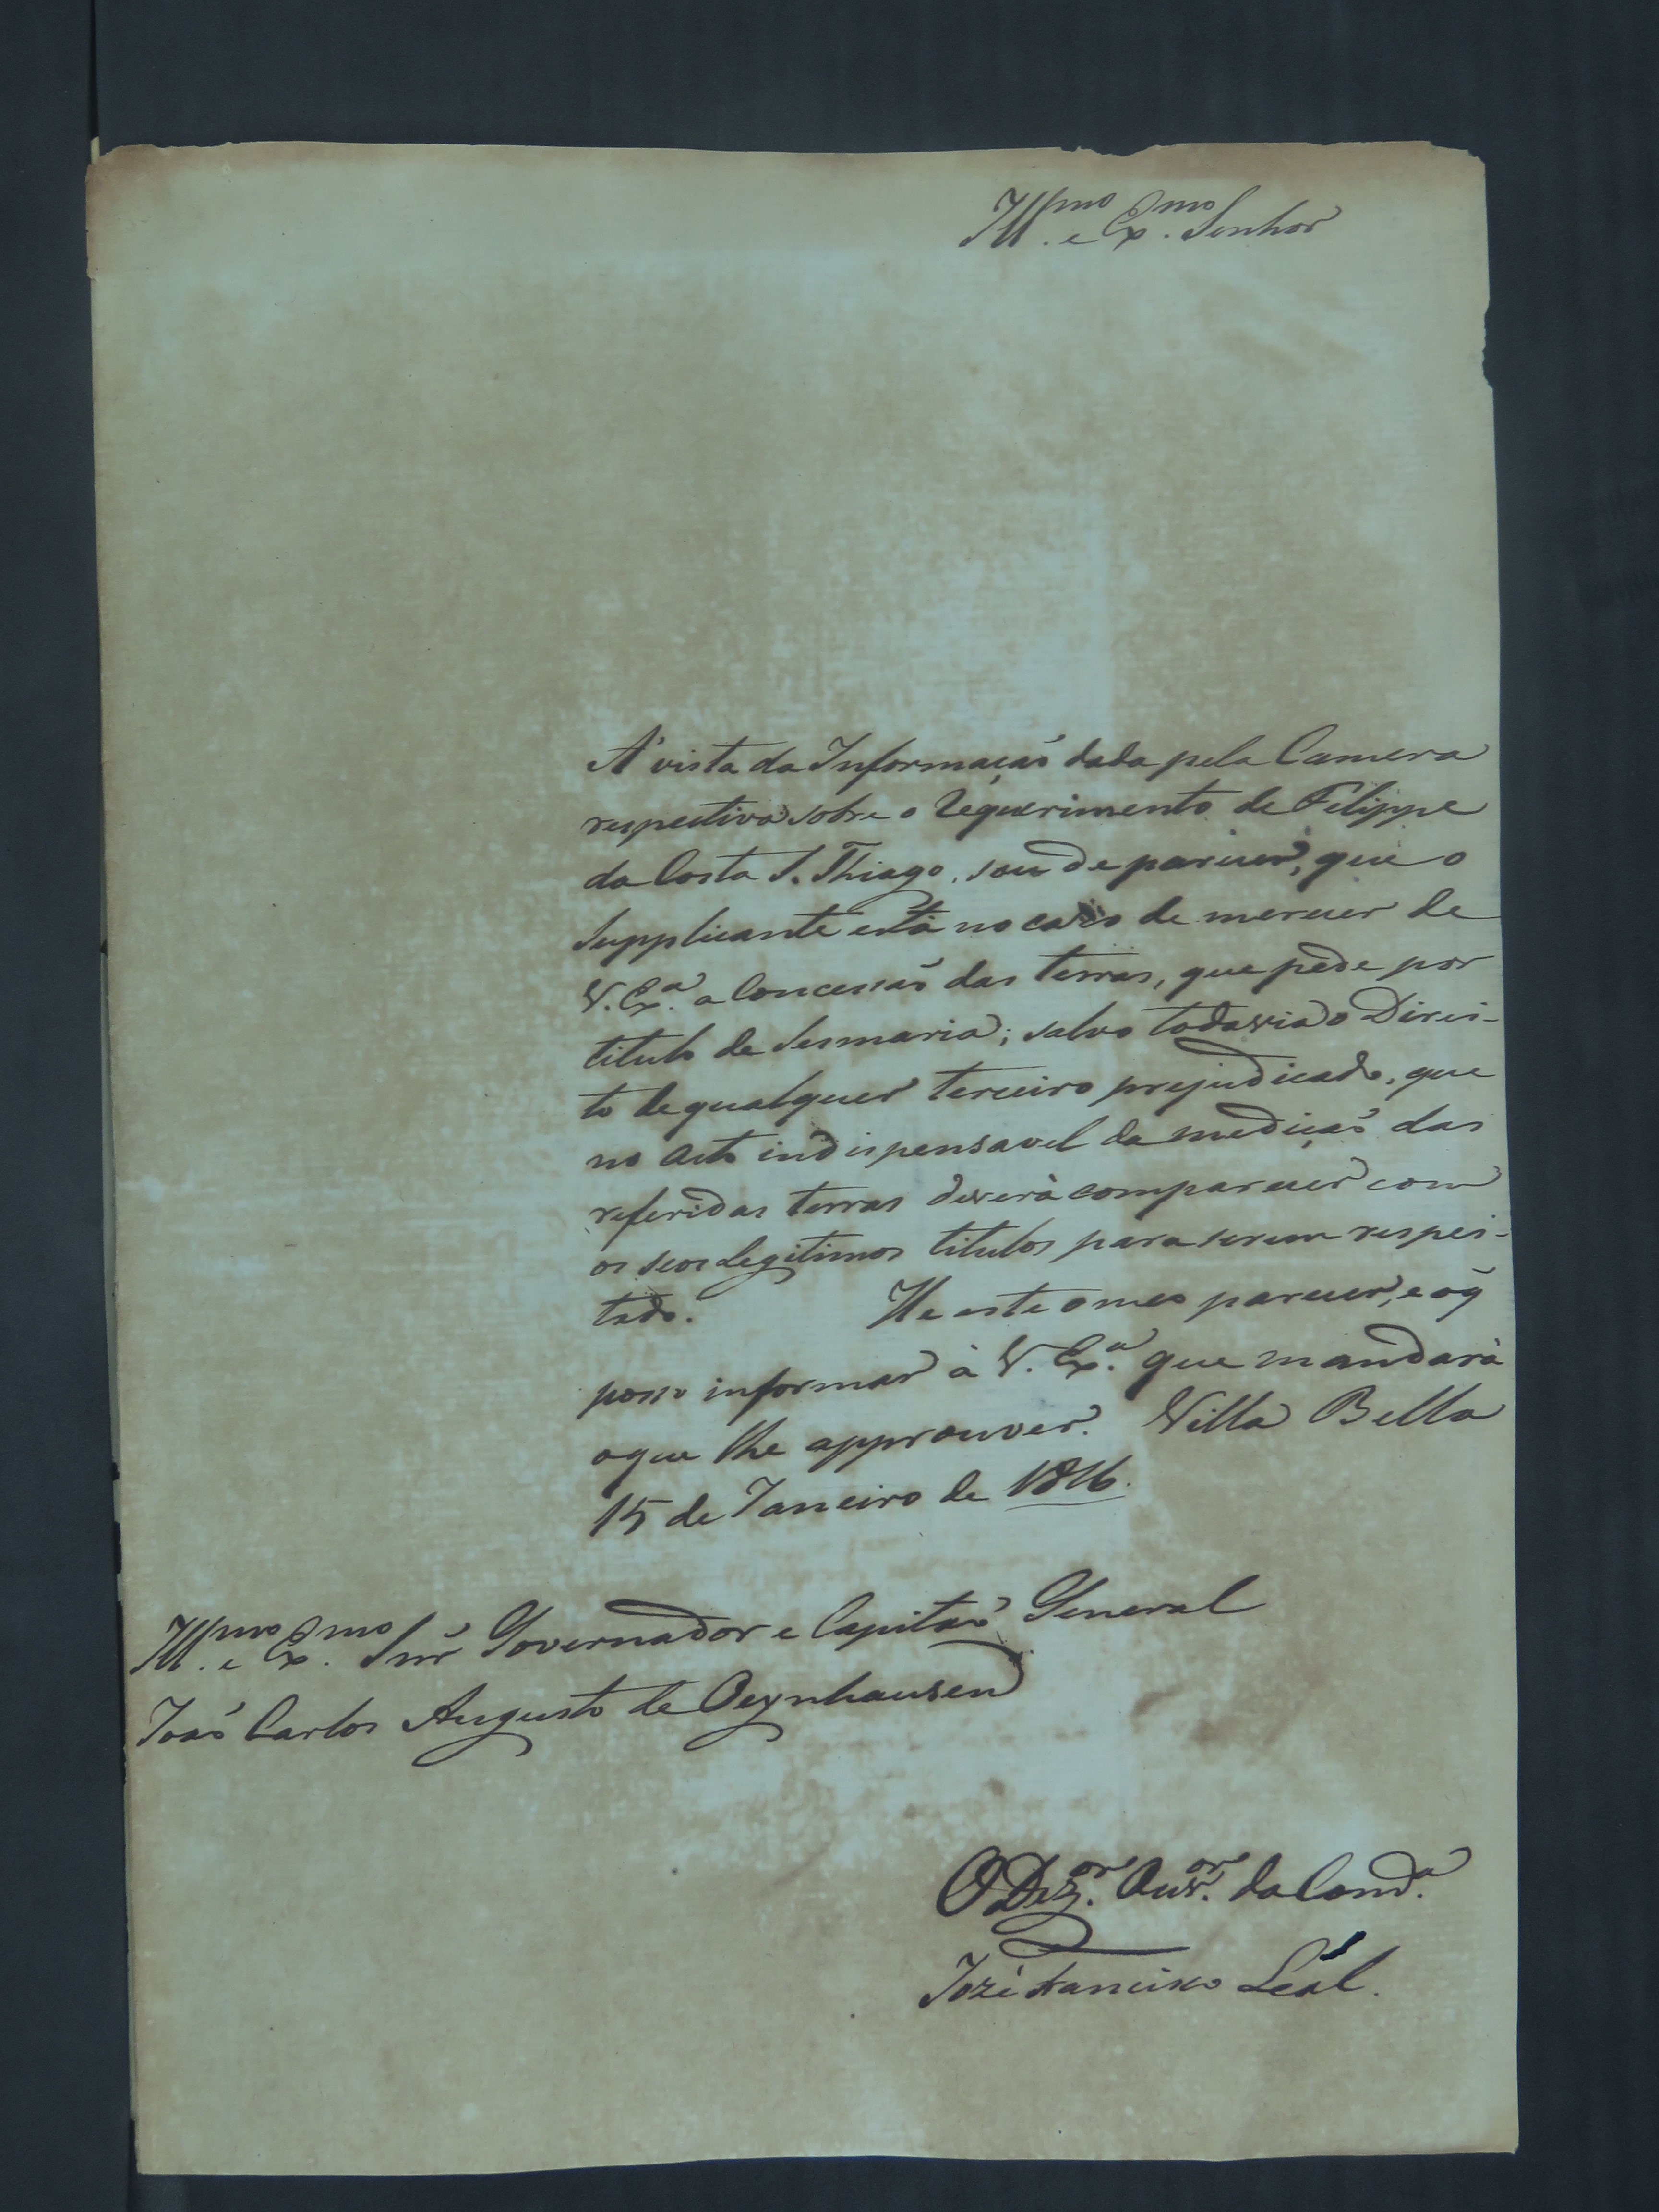 Ill.mo e Ex.mo Senhor
A' vista da Informaçaõ dada pela Camera
respectiva sobre o Requerimento de Felippe
da Costa S. Thiago, sou de parecer, que o
Supplicante está no caso de merecer de
V. Ex.a a Concessaõ das terras, que pede por
titulo de Sesmaria; salvo todavia o Direi-
to de qualquer terceiro prejudicado, que
no acto indispensavel da mediçaõ das
referidas terras deverà comparecer com
os seos legitimos titulos para serem respei-
tado. He este o meo parecer, e o q̃
posso informar à V. Ex.a que mandarà
o que lhe approuver. Villa Bella
15 de Janeiro de 1816.
Ill.mo e Ex.mo Snr̃ Governador e Capitaõ General
Joaõ Carlos Augusto de Oeynhausen
O Dez.or Ouv.or da Com.ca
Jozé Francisco Leal.